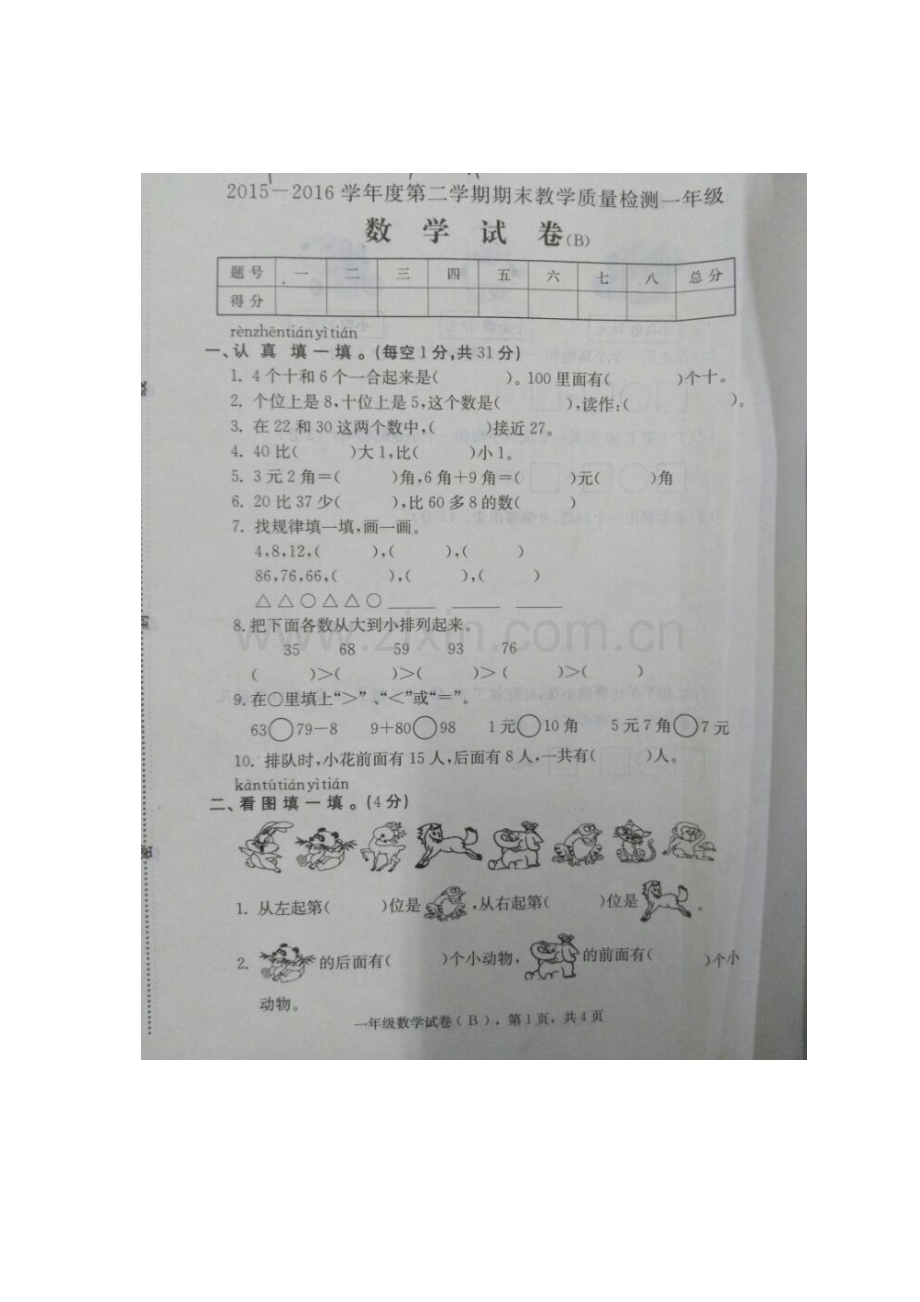 2015—2016学年度第二学期期末教学质量检测一年级
数 学 试 卷(B)
题号 一 二 三 四 五 六 七 八 总分
得分
rènzhēntiányìtián
一、认 真 填 一 填。(每空1分,共31分)
1. 4个十和6个一合起来是( )。100里面有( )个十。
2. 个位上是8,十位上是5,这个数是( ),读作:( )。
3. 在22和30这两个数中,( )接近27。
4. 40比( )大1,比( )小1。
5. 3元2角=( )角,6角+9角=( )元( )角
6. 20比37少( ),比60多8的数( )
7. 找规律填一填,画一画。
4,8,12,( ),( ),( )
86,76,66,( ),( ),( )
△△○△△○_____ _____ _____
8.把下面各数从大到小排列起来。
35 68 59 93 76
( )>( )>( )>( )>( )
9.在○里填上“>”、“<”或“=”。
63○79-8 9+80○98 1元○10角 5元7角○7元
10. 排队时,小花前面有15人,后面有8人,一共有( )人。
kàntútiányìtián
二、看图填一填。(4分)
1. 从左起第( )位是 ,从右起第( )位是 。
2. 的后面有( )个小动物, 的前面有( )个小
动物。
一年级数学试卷(B),第1页,共4页
www.zixin.com.cn